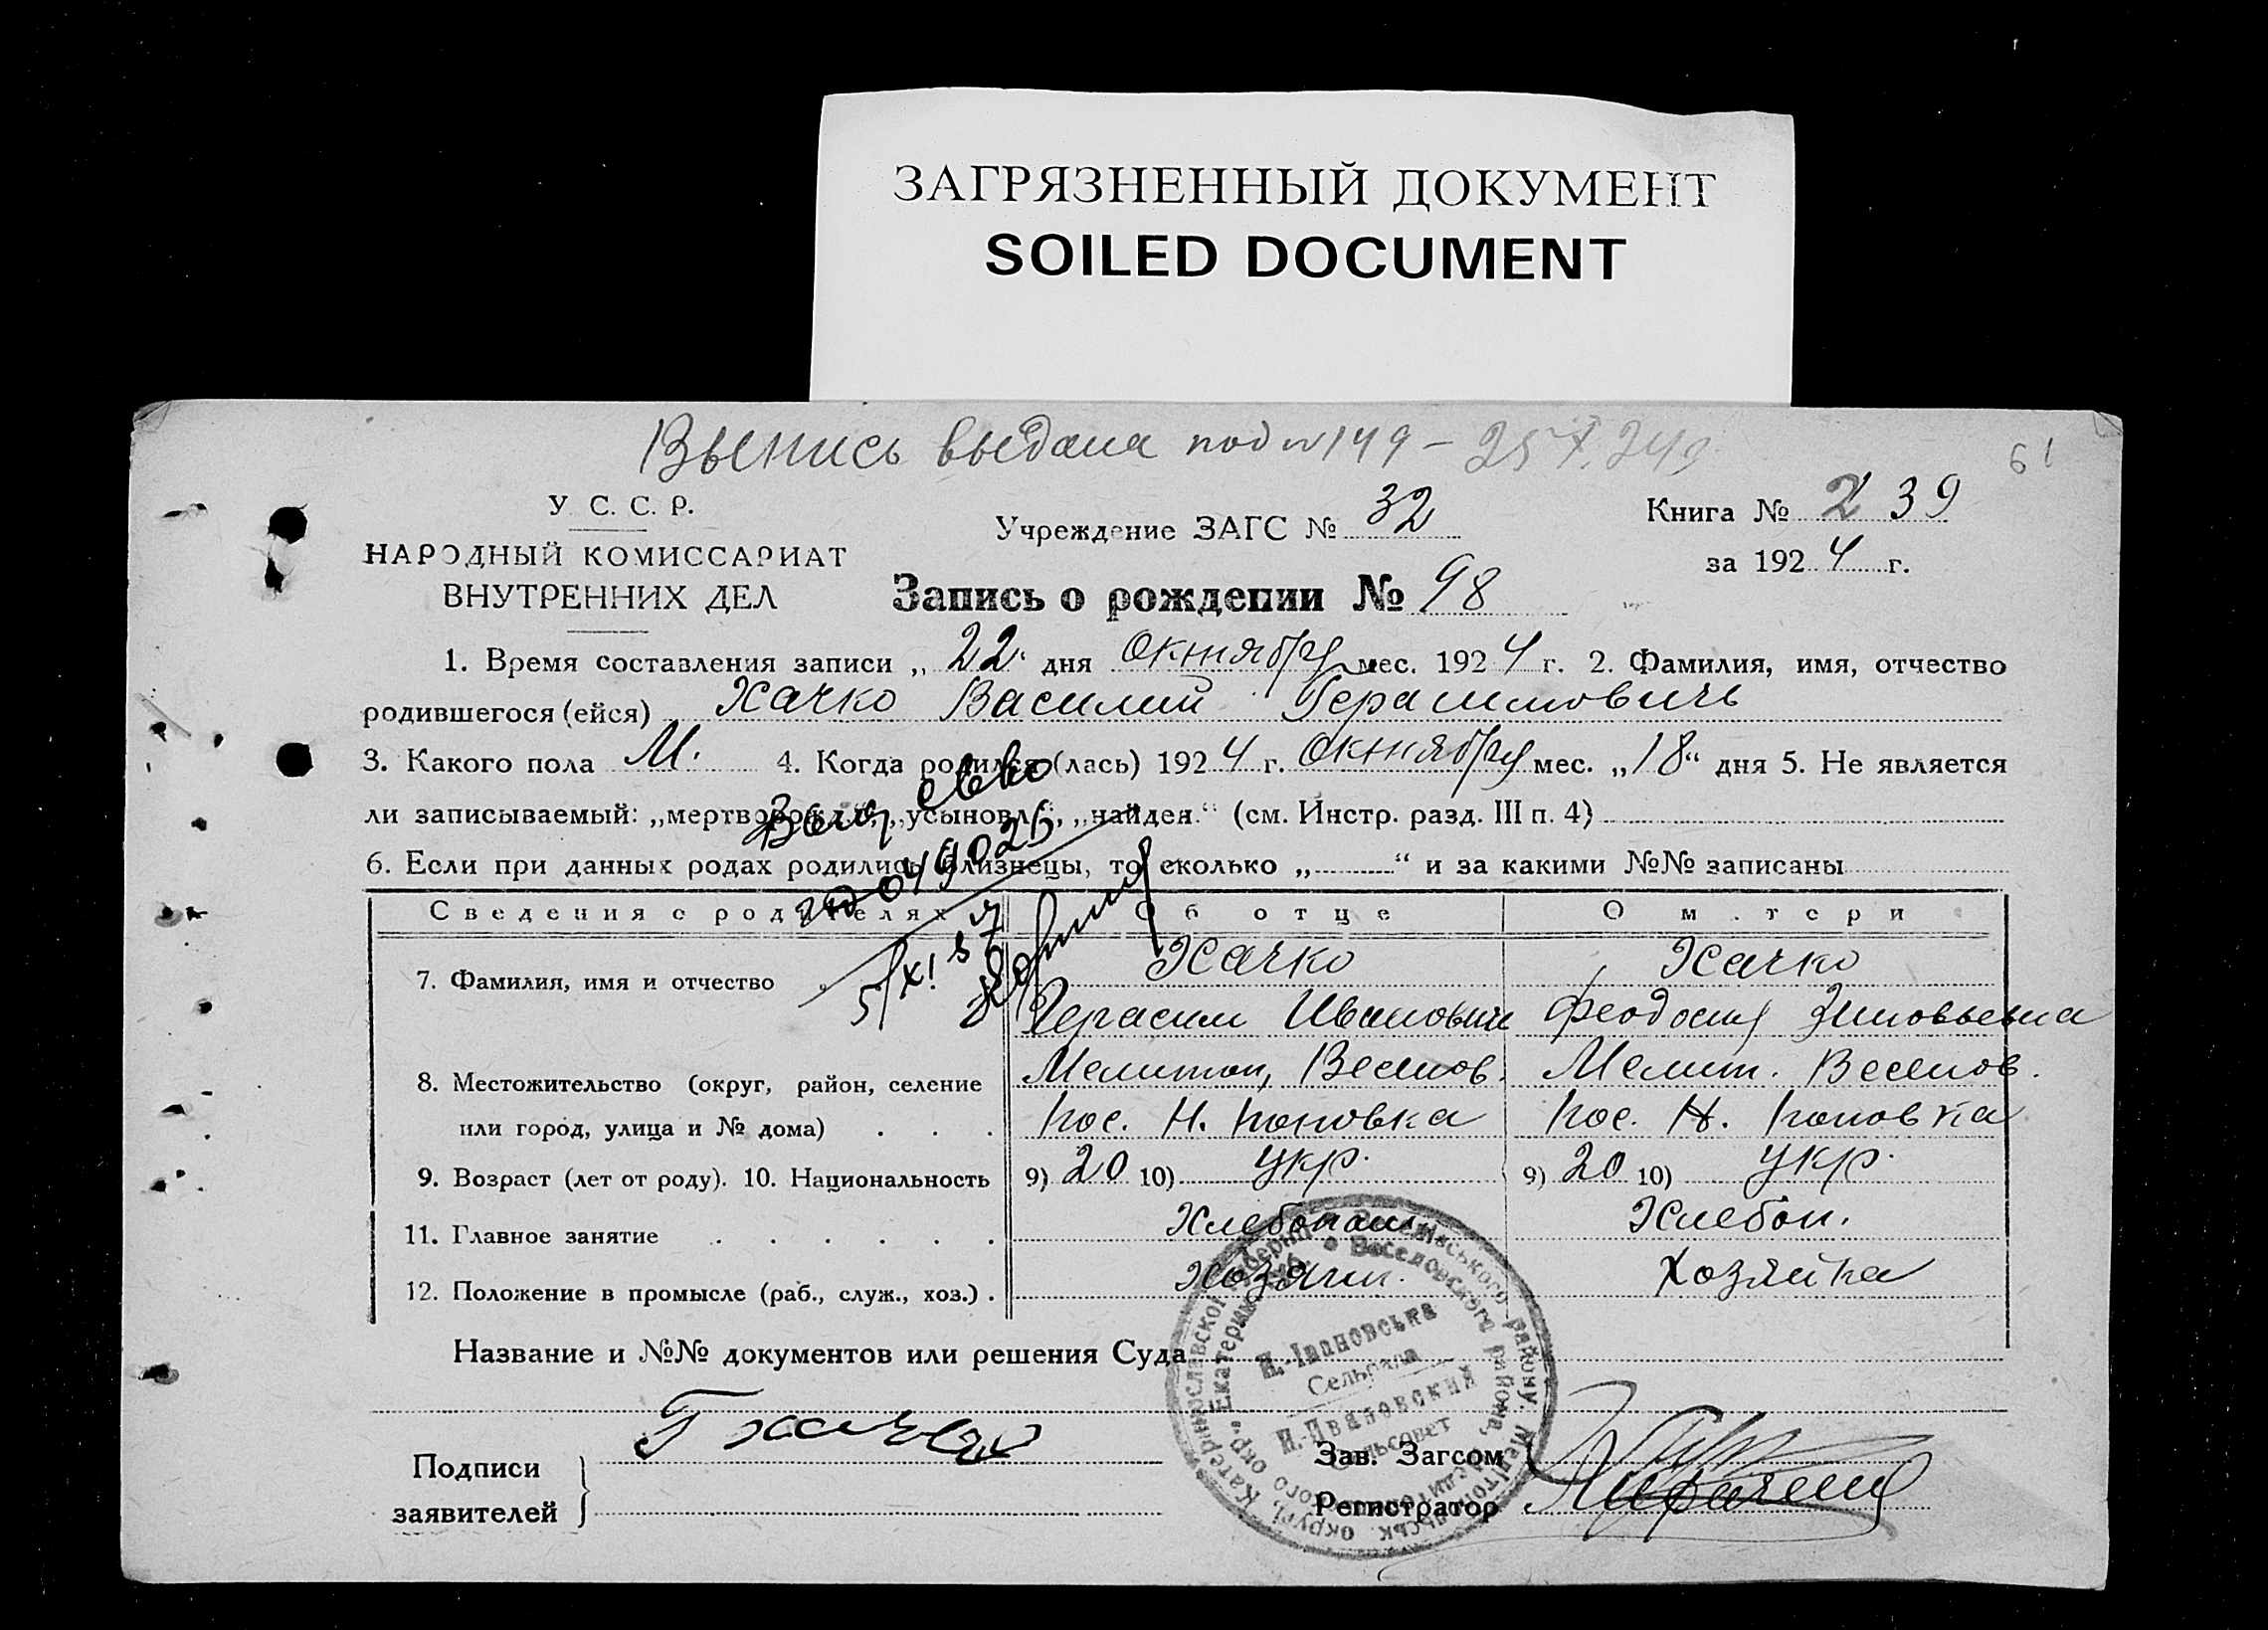 ЗАГРЯЗНЕННЫЙ ДОКУМЕНТ
SOILED DOCUMENT
Выпись выдана под № 149 – 25
61
У. С. С. Р.
НАРОДНЫЙ КОМИССАРИАТ
ВНУТРЕННИХ ДЕЛ
Учреждение ЗАГС № 32
Книга № 2 39
за 1924 г.
Запись о рождении № 98
1. Время составления записи „22“ дня октября мес. 1924 г. 2. Фамилия, имя, отчество
родившегося (ейся) Хачко Василий Герасимовичь
3. Какого пола М. 4. Когда родился (лась) 1924 г. октября мес. „18“ дня 5. Не является
ли записываемый: „мертворожд.“, „усыновл.“, „найден.“ (см. Инстр. разд. III п. 4)
6. Если при данных родах родились близнецы, то сколько „ “ и за какими №№ записаны
Выд. св-во
049025
5/XI
Сведения о родителях Об отце О матери
7. Фамилия, имя и отчество Хачко Хачко
Герасим Иванович Феодосия Зиновьевна
8. Местожительство (округ, район, селение Мелитоп, Веселов. Мелит. Веселов.
или город, улица и № дома) . . . пос. Н. Поповка пос. Н. Поповка
9. Возраст (лет от роду). 10. Национальность 9) 20 10) укр. 9) 20 10) укр.
11. Главное занятие . . . . . . Хлебопаш. Хлебоп.
12. Положение в промысле (раб., служ., хоз.) . Хозяин. Хозяйка
Название и №№ документов или решения Суда
Н.-Івановська
Сельрада
Н.-Ивановский
Сельсовет
Подписи
заявителей
Г Хачко
Зав. Загсом
Регистратор